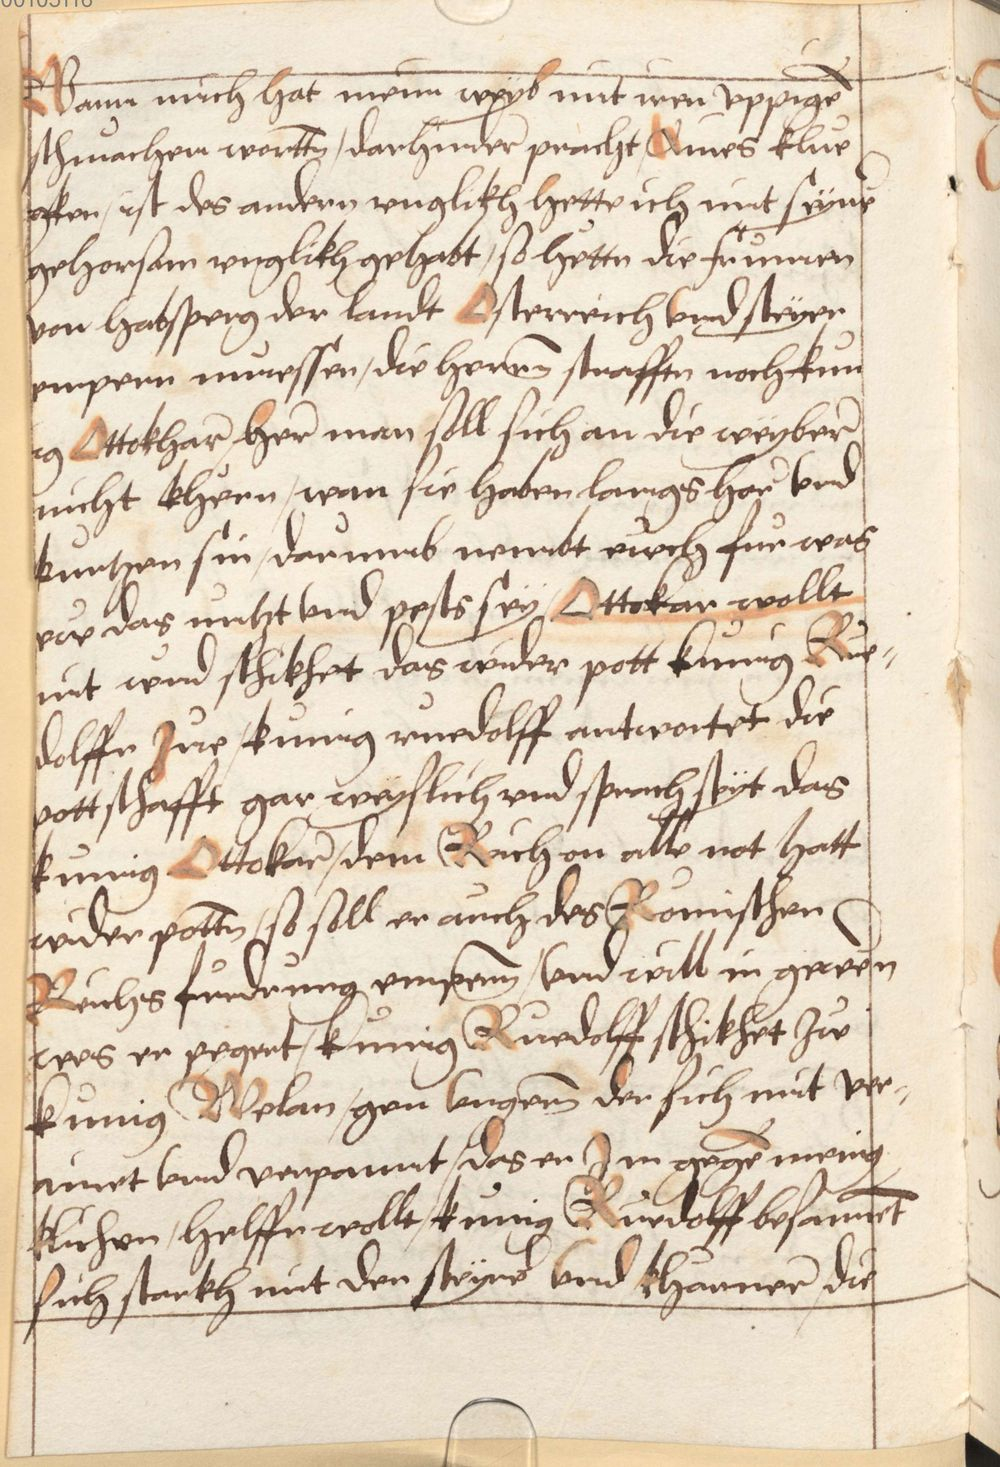 00105116
Wann mich hat mein weyb mit iren uppigen̄
schmachen wortt̄n / darhinder pracht / Aines klue
gken / ist des andern unglikh hette ich mit seyne
gehorsam unglikh gehabt / so hettn die frumen
von Habsperg der landt Osterreich und steyer
empern muessen / die herrn̄ strafftn noch kun
ig Ottokhar / her man soll sich an die weyber
nicht kheren / wan sie haben langs har und
kurtzen sin / darumb nembt euch fur was
eur das nutzt und pests sey / Ottokar wollt
nit und schikhet das wider pott kunig Rue-
dolffn Zue / kunig ruedolff antwortet die
pottschafft gar weyslich und sprach seyt das
kunig Ottokar / dem Reich on alle not hatt
wider pottn̄ / so soll er auch des Romischen
Reichs furdrung empern̄ / und will in geweren
wes er pegert / kunig Ruedolff schikhet Zue
kunig Welan / gen ungern̄ der sich mit ver-
ainet und verpannt / das er Im gegen̄ menig
klichen / helffn wollt / kunig Ruedolff besamet̄
sich starkh mit den steyrn und kharnern / die